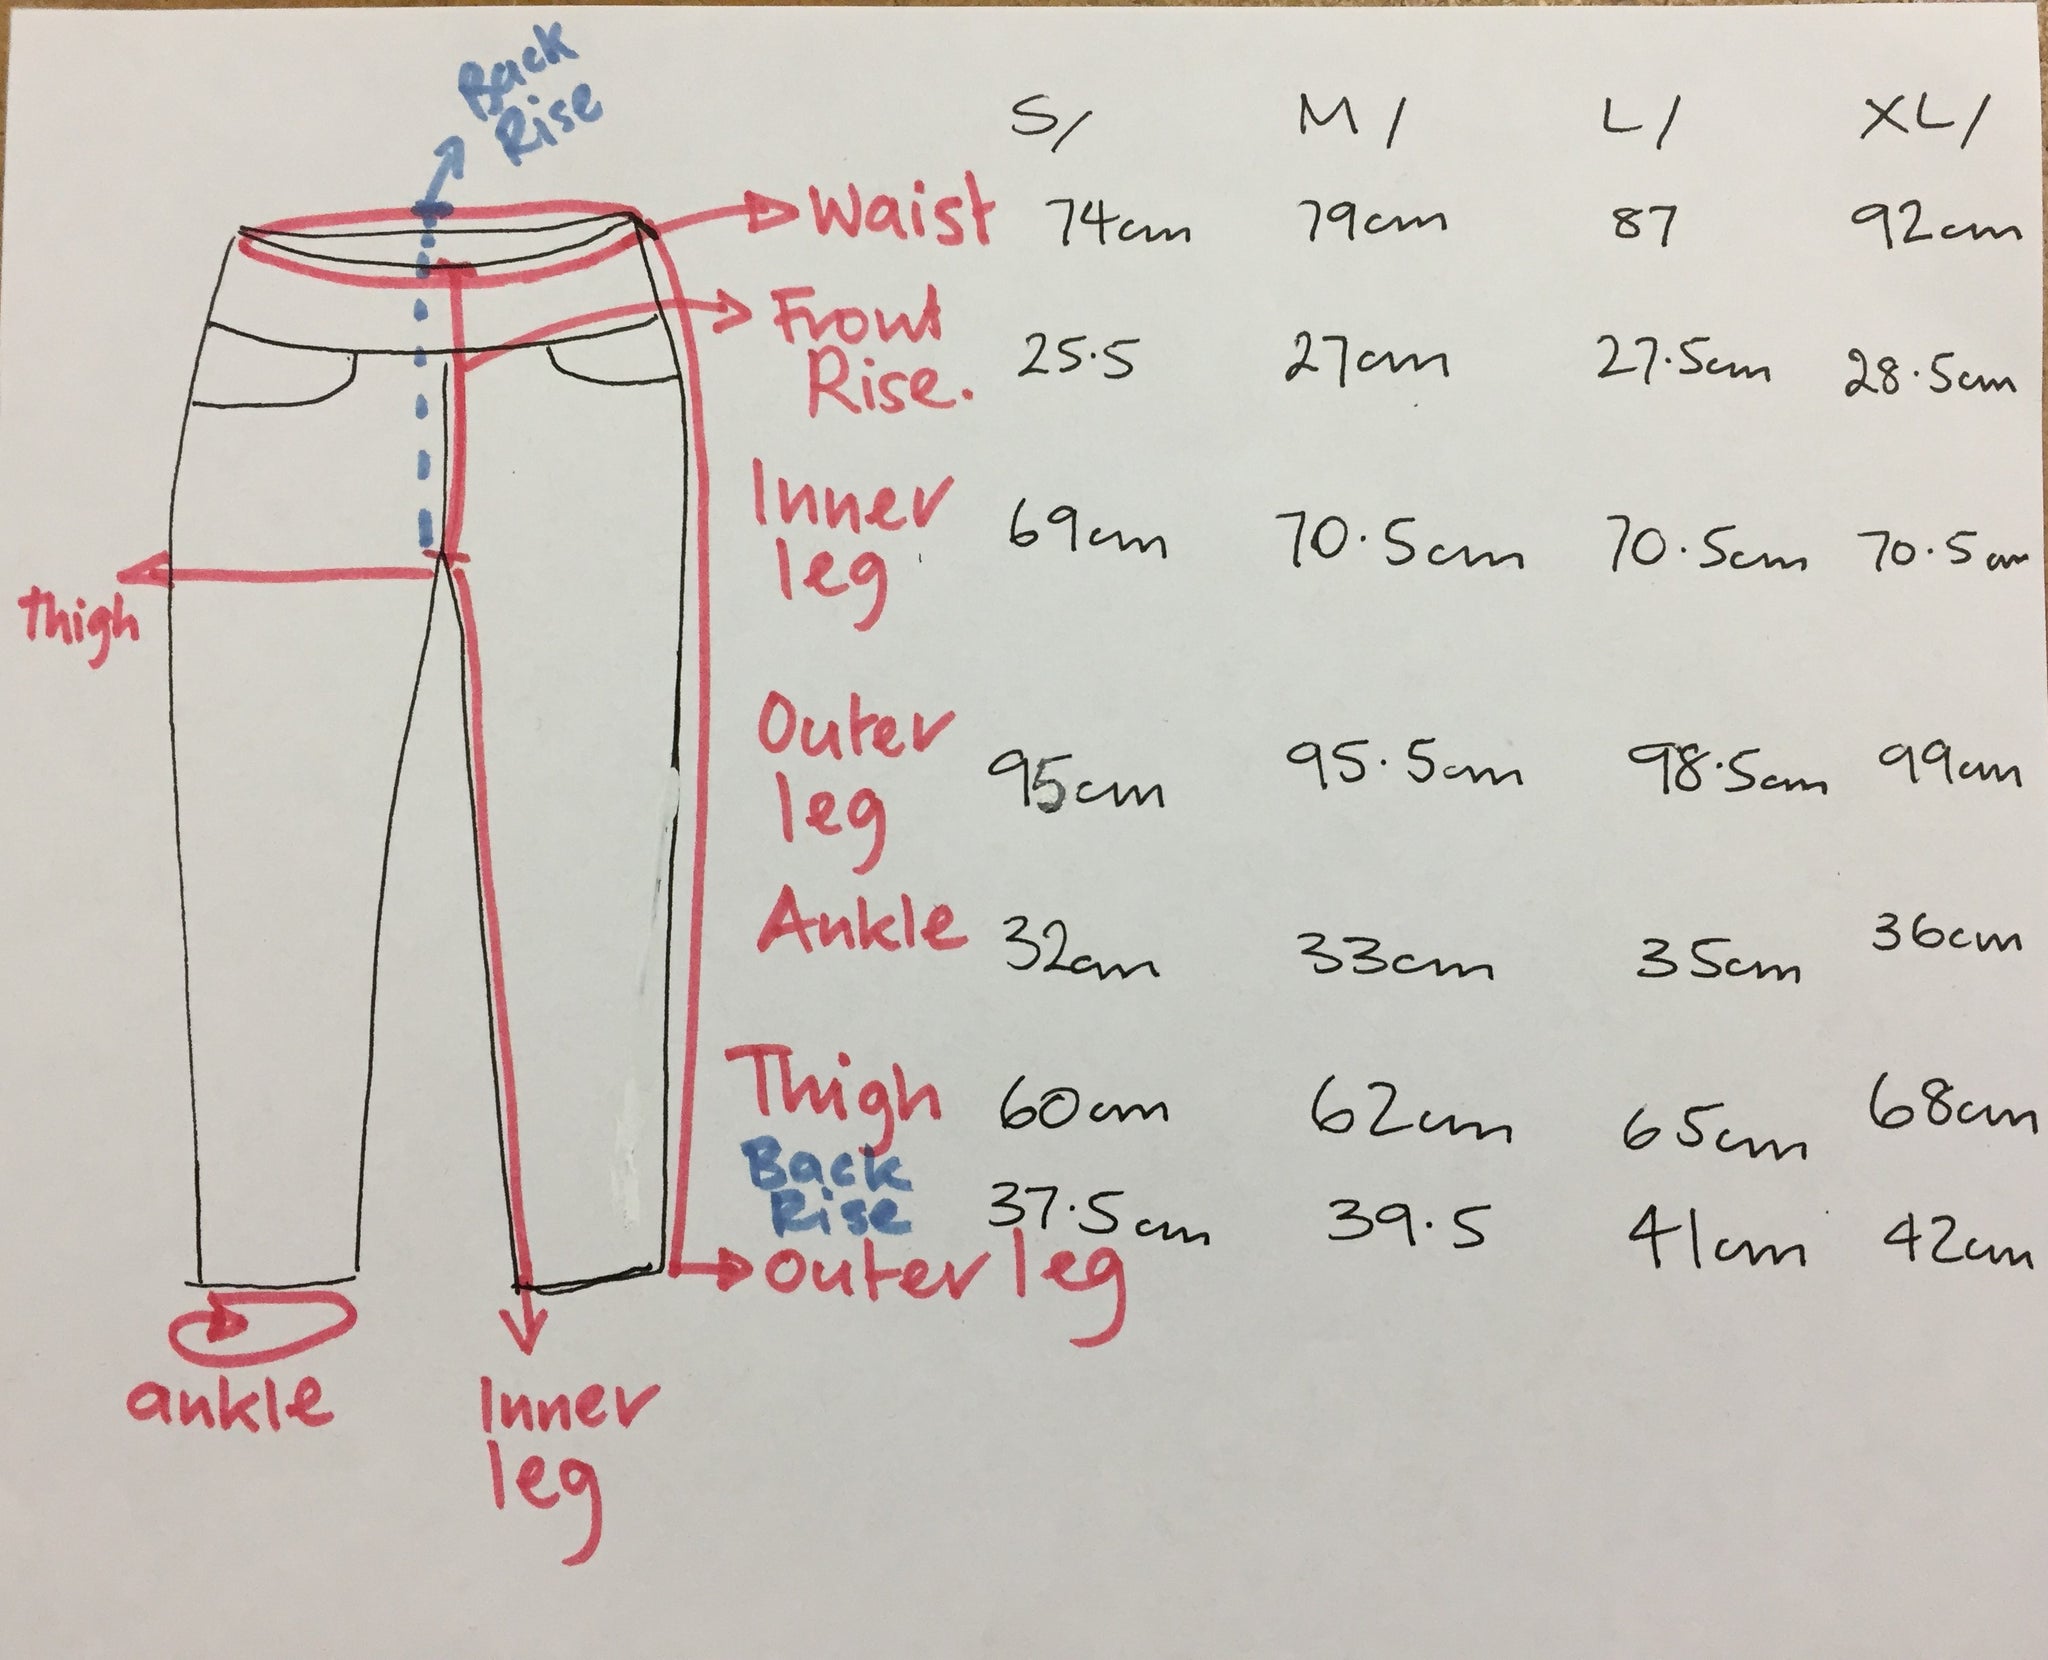 Back
Rise
S/ M/ L/ XL/
Waist 74cm 79cm 87 92cm
Front
Rise. 25.5 27cm 27.5cm 28.5cm
Inner
leg 69cm 70.5cm 70.5cm 70.5cm
thigh
Outer
leg 95cm 95.5cm 98.5cm 99cm
Ankle 32cm 33cm 35cm 36cm
Thigh 60cm 62cm 65cm 68cm
Back
Rise 37.5cm 39.5 41cm 42cm
Outer leg
ankle
Inner
leg